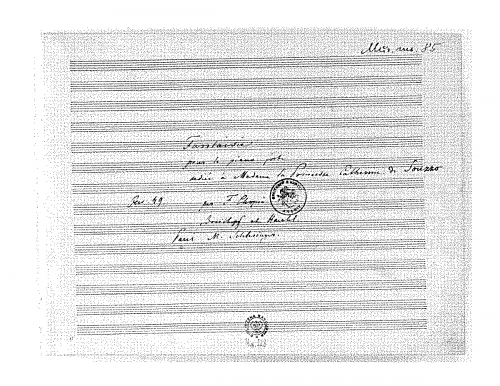 Mus. ms. 85
Fantaisie
pour le piano forte
dédiée à Madame la Princesse Catherine de Souzzo
Oev. 49 par F. Chopin
Breitkopf et Haertel
Paris M. Schlesinger